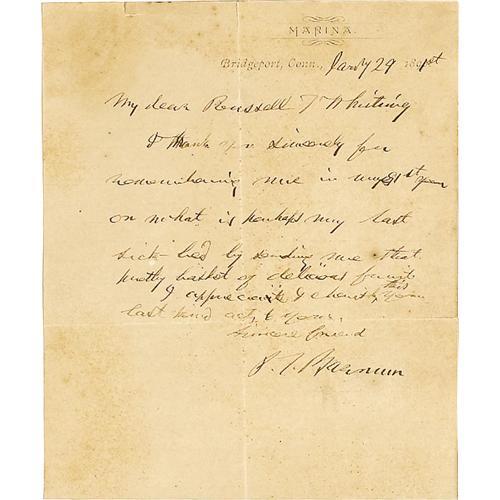 MARINA.
Bridgeport, Conn., Jany 29 1891st
My dear Russell T Whiting
I thank you sincerely for
remembering me in my 81st year
on what is perhaps my last
sick-bed by sending me that
pretty basket of delicious fruit.
I appreciate & cherish this your
last kind act, & your
sincere friend
P. T. Barnum